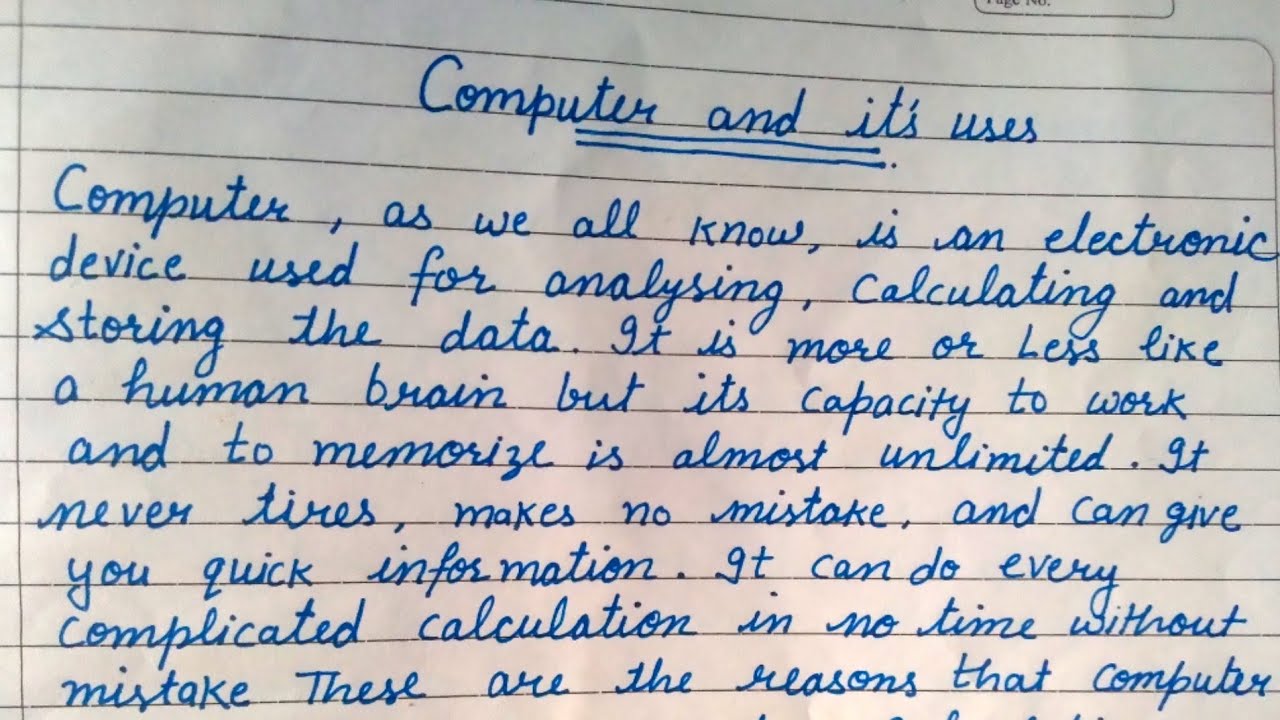 Page No.
Computer and it's uses
Computer, as we all know, is an electronic
device used for analysing, calculating and
storing the data. It is more or less like
a human brain but its capacity to work
and to memorize is almost unlimited. It
never tires, makes no mistake, and can give
you quick information. It can do every
complicated calculation in no time without
mistake These are the reasons that computer